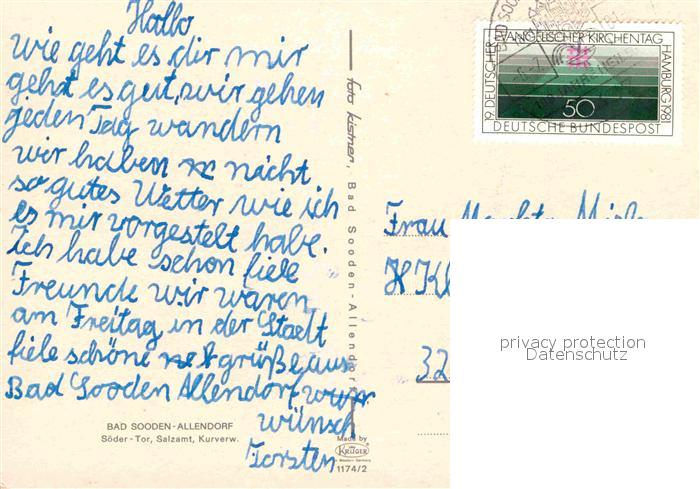 Hallo
wie geht es dir mir
gehd es gut, wir gehen
jeden Tag wandern
wir haben nicht
so gutes Wetter wie ich
es mir vorgestelt habe.
Ich habe schon fiele
Freunde wir waren
am Freitag in der Stadt
fiele schöne grüße aus
Bad Sooden Allendorf
wünsch
Torsten
BAD SOODEN-ALLENDORF
Söder-Tor, Salzamt, Kurverw.
foto kistner, Bad Sooden-Allendorf
Made by
KRÜGER
1174/2
BAD SOO
19. DEUTSCHER EVANGELISCHER KIRCHENTAG HAMBURG 1981
50
DEUTSCHE BUNDESPOST
Frau
32
privacy protection
Datenschutz